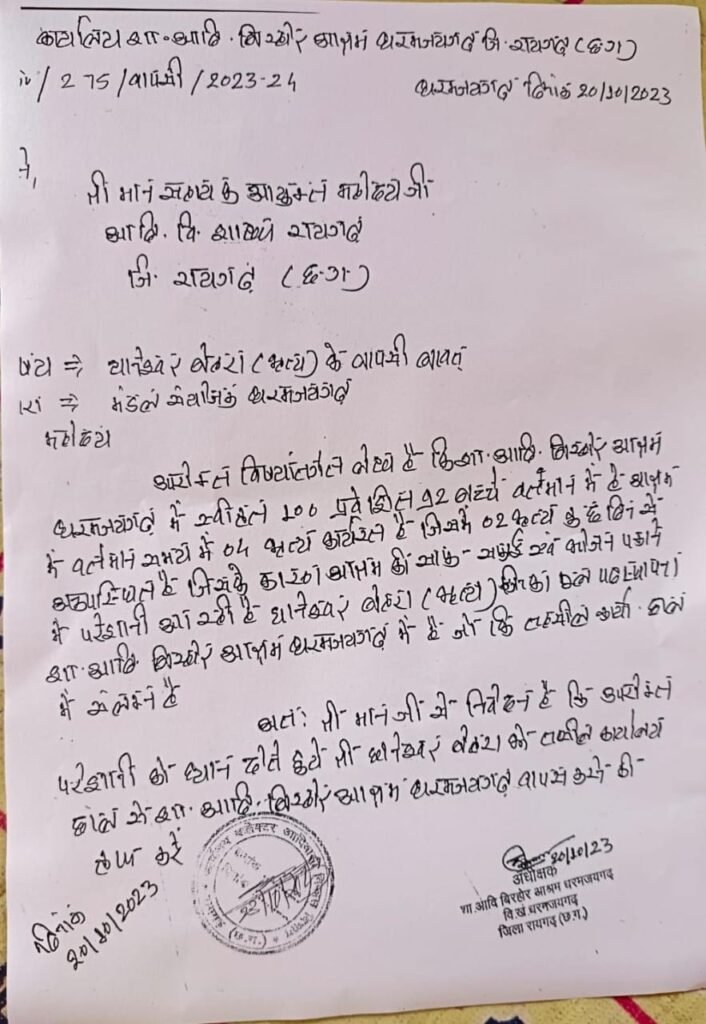 कार्यालय शा. आदि. बिरहोर आश्रम धरमजयगढ़ जि. रायगढ़ (छ.ग)
/ 275 / वापसी / 2023-24 धरमजयगढ़ दिनांक 20/10/2023
श्री मान सहायक आयुक्त महोदय जी
आदि. वि. शाखा रायगढ़
जि. रायगढ़ (छ.ग)
धानेश्वर बेहरा (भृत्य) के वापसी बावत्
मंडल संयोजक धरमजयगढ़
महोदय
उपरोक्त विषयांतर्गत लेख है कि शा. आदि. बिरहोर आश्रम
धरमजयगढ़ में स्वीकृत 100 प्रवेशित 92 बच्चे वर्तमान में है आश्रम
में वर्तमान समय में 04 भृत्य कार्यरत है जिसमें 02 भृत्य कुछ दिन से
अनुपस्थित है जिसके कारण आश्रम की साफ-सफाई एवं भोजन पकाने
में परेशानी आ रही है धानेश्वर बेहरा (भृत्य) पदस्थापना
शा. आदि. बिरहोर आश्रम धरमजयगढ़ में है जो कि तहसील कार्या. छाल
में संलग्न है
अतः श्री मान जी से निवेदन है कि उपरोक्त
परेशानी को ध्यान देते हुये श्री धानेश्वर बेहरा को तहसील कार्यालय
छाल से शा. आदि. बिरहोर आश्रम धरमजयगढ़ वापस करने की
करें
दिनांक
20/10/2023
20/10/23
अधीक्षक
शा.आदि बिरहोर आश्रम धरमजयगढ़
वि.खं धरमजयगढ़
जिला रायगढ़ (छ.ग.)